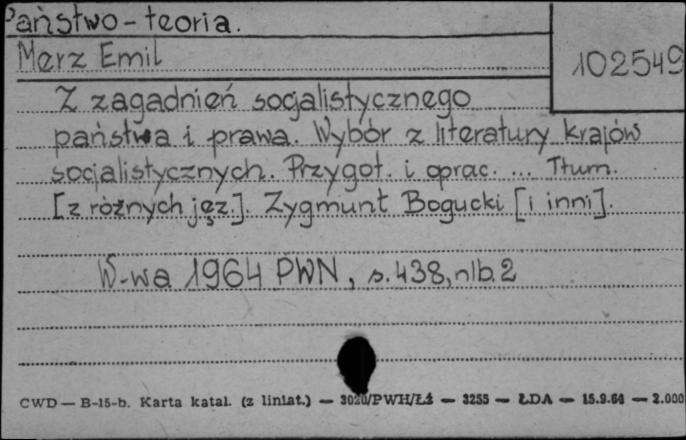 Państwo - teoria.
Merz Emil
102549
Z zagadnień socjalistycznego
państwa i prawa. Wybór z literatury krajów
socjalistycznych. Przygot. i oprac. ... Tłum.
[z różnych jęz.]. Zygmunt Bogucki [i inni].
W-wa 1964 PWN, s. 438, nlb. 2
CWD — B-15-b. Karta katal. (z liniat.) — 3020/PWH/Łź — 3255 — ŁDA — 15.9.64 — 2.000